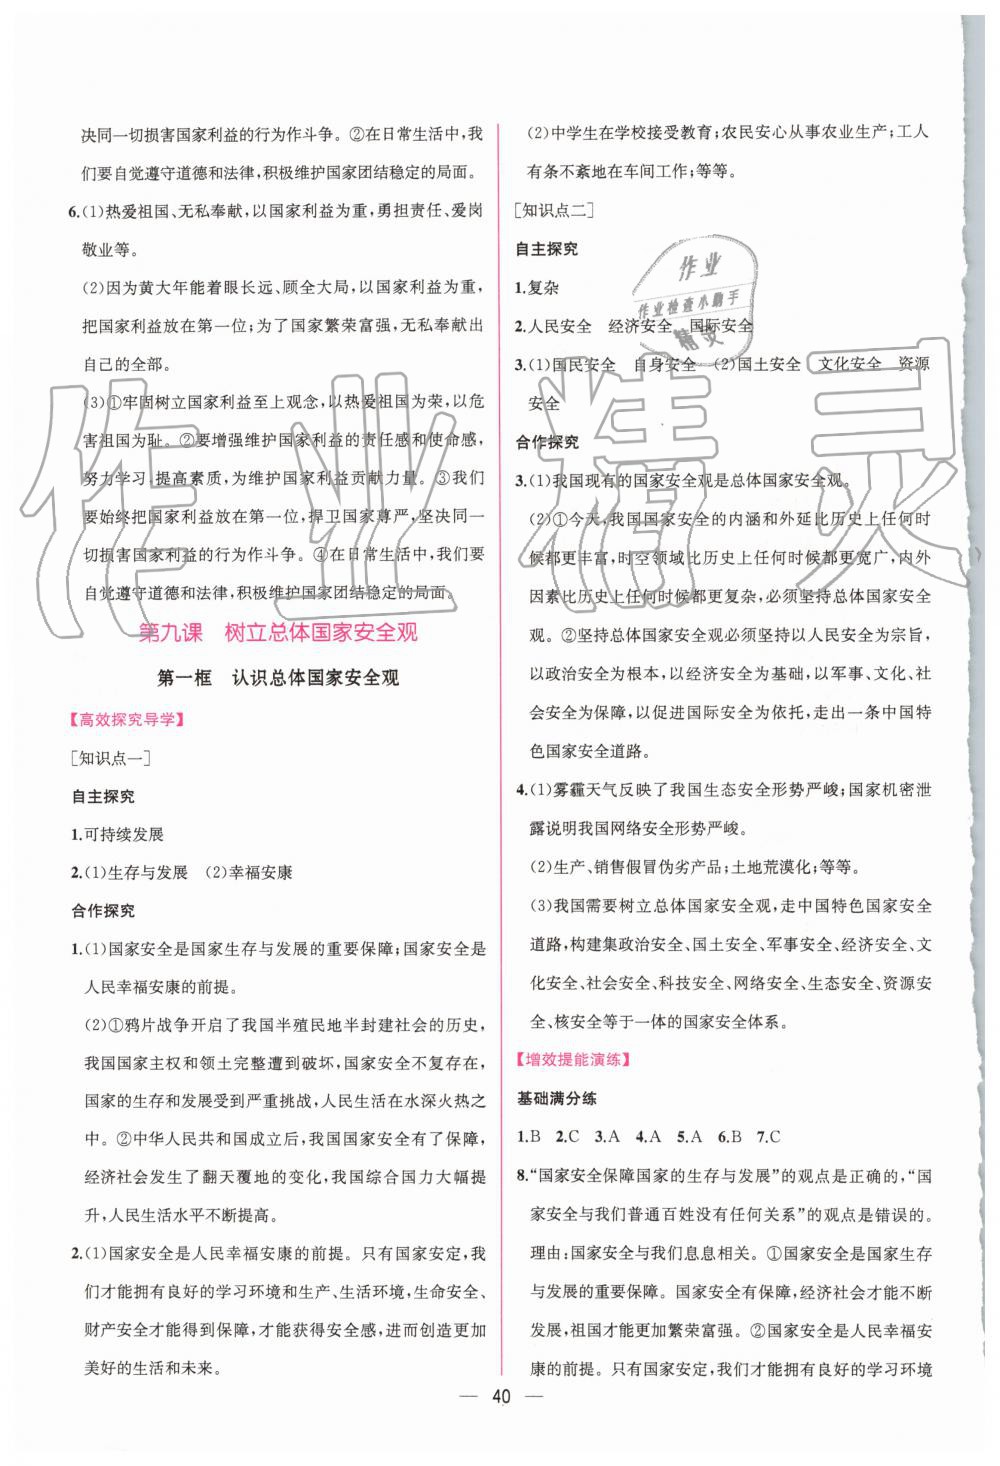 决同一切损害国家利益的行为作斗争。②在日常生活中,我
们要自觉遵守道德和法律,积极维护国家团结稳定的局面。
6.(1)热爱祖国、无私奉献,以国家利益为重,勇担责任、爱岗
敬业等。
(2)因为黄大年能着眼长远、顾全大局,以国家利益为重,
把国家利益放在第一位;为了国家繁荣富强,无私奉献出
自己的全部。
(3)①牢固树立国家利益至上观念,以热爱祖国为荣,以危
害祖国为耻。②要增强维护国家利益的责任感和使命感,
努力学习,提高素质,为维护国家利益贡献力量。③我们
要始终把国家利益放在第一位,捍卫国家尊严,坚决同一
切损害国家利益的行为作斗争。④在日常生活中,我们要
自觉遵守道德和法律,积极维护国家团结稳定的局面。
第九课 树立总体国家安全观
第一框 认识总体国家安全观
【高效探究导学】
[知识点一]
自主探究
1.可持续发展
2.(1)生存与发展 (2)幸福安康
合作探究
1.(1)国家安全是国家生存与发展的重要保障;国家安全是
人民幸福安康的前提。
(2)①鸦片战争开启了我国半殖民地半封建社会的历史,
我国国家主权和领土完整遭到破坏,国家安全不复存在,
国家的生存与发展受到严重挑战,人民生活在水深火热之
中。②中华人民共和国成立后,我国国家安全有了保障,
经济社会发生了翻天覆地的变化,我国综合国力大幅提
升,人民生活水平不断提高。
2.(1)国家安全是人民幸福安康的前提。只有国家安定,我
们才能拥有良好的学习环境和生产、生活环境,生命安全、
财产安全才能得到保障,才能获得安全感,进而创造更加
美好的生活和未来。
(2)中学生在学校接受教育;农民安心从事农业生产;工人
有条不紊地在车间工作;等等。
[知识点二]
自主探究
1.复杂
2.人民安全 经济安全 国际安全
3.(1)国民安全 自身安全 (2)国土安全 文化安全 资源
安全
合作探究
3.(1)我国现有的国家安全观是总体国家安全观。
(2)①今天,我国国家安全的内涵和外延比历史上任何时
候都更丰富,时空领域比历史上任何时候都更宽广,内外
因素比历史上任何时候都更复杂,必须坚持总体国家安全
观。②坚持总体国家安全观必须坚持以人民安全为宗旨,
以政治安全为根本,以经济安全为基础,以军事、文化、社
会安全为保障,以促进国际安全为依托,走出一条中国特
色国家安全道路。
4.(1)雾霾天气反映了我国生态安全形势严峻;国家机密泄
露说明我国网络安全形势严峻。
(2)生产、销售假冒伪劣产品;土地荒漠化;等等。
(3)我国需要树立总体国家安全观,走中国特色国家安全
道路,构建集政治安全、国土安全、军事安全、经济安全、文
化安全、社会安全、科技安全、网络安全、生态安全、资源安
全、核安全等于一体的国家安全体系。
【增效提能演练】
基础满分练
1.B 2.C 3.A 4.A 5.A 6.B 7.C
8.“国家安全保障国家的生存与发展”的观点是正确的,“国
家安全与我们普通百姓没有任何关系”的观点是错误的。
理由:国家安全与我们息息相关。①国家安全是国家生存
与发展的重要保障。国家安全有保障,经济社会才能不断
发展,祖国才能更加繁荣富强。②国家安全是人民幸福安
康的前提。只有国家安定,我们才能拥有良好的学习环境
— 40 —
作业
作业检查小助手
精灵
作业精灵